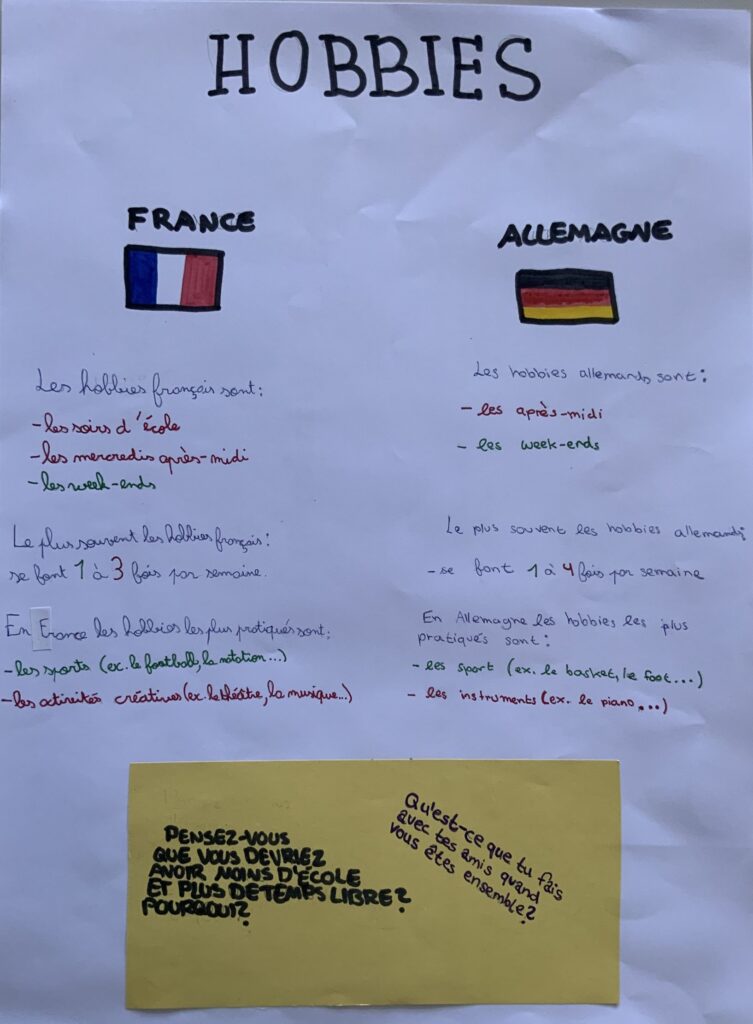 HOBBIES
FRANCE
Les hobbies français sont:
-les soirs d'école
-les mercredis après-midi
-les week-ends
Le plus souvent les hobbies français:
se font 1 à 3 fois par semaine.
En France les hobbies les plus pratiqués sont:
-les sports (ex. le football, la natation...)
-les activités créatives (ex. le théâtre, la musique...)
ALLEMAGNE
Les hobbies allemands sont:
- les après-midi
- les week-ends
Le plus souvent les hobbies allemands:
- se font 1 à 4 fois par semaine
En Allemagne les hobbies les plus
pratiqués sont:
- les sport (ex. le basket, le foot...)
- les instruments (ex. le piano...)
PENSEZ-VOUS
QUE VOUS DEVRIEZ
AVOIR MOINS D'ÉCOLE
ET PLUS DE TEMPS LIBRE?
POURQUOI?
Qu'est-ce que tu fais
avec tes amis quand
vous êtes ensemble?